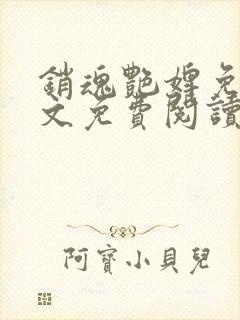 銷魂艷婢免
文免費閱讀
阿寶小貝兒